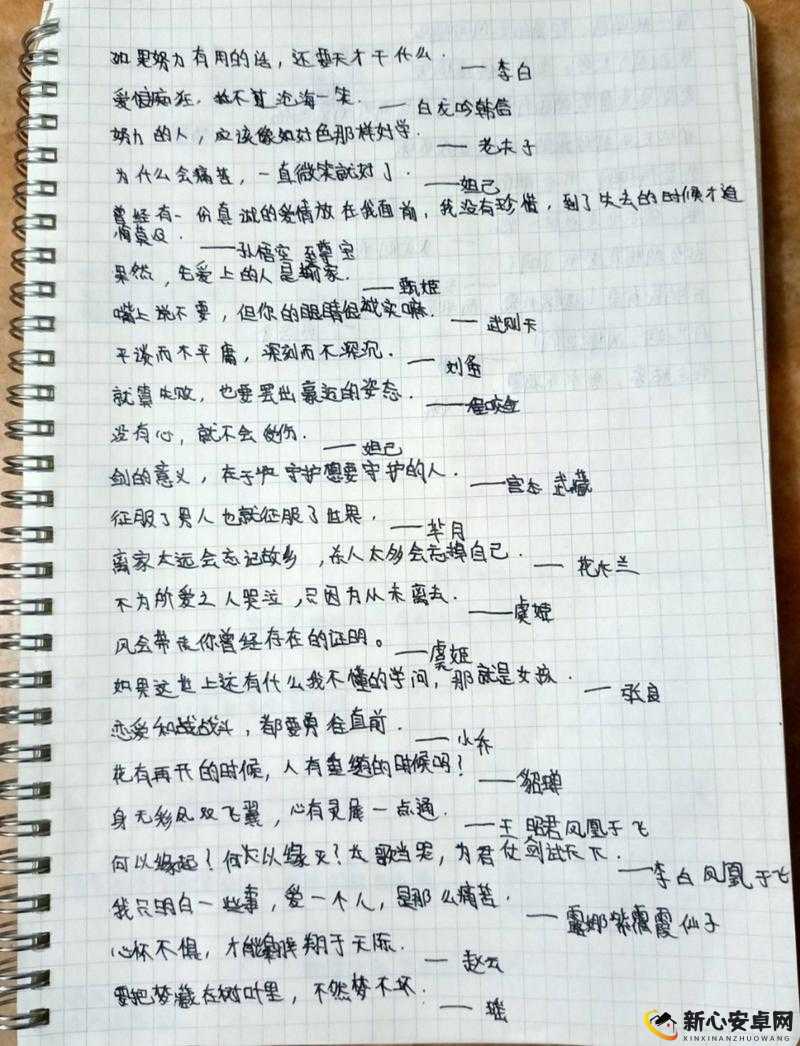 如果努力有用的话，还要天才干什么. ——李白
爱恨痴狂，抵不过沧海一笑. ——白龙吟韩信
努力的人，应该像好色那样好学. ——老夫子
为什么会痛苦，一直微笑就好了. ——妲己
曾经有一份真诚的爱情放在我面前，我没有珍惜，到了失去的时候才追
悔莫及. ——孙悟空 至尊宝
果然，先爱上的人是输家. ——甄姬
嘴上说不要，但你的眼睛很诚实嘛. ——武则天
平淡而不平庸，深刻而不深沉. ——刘备
就算失败，也要摆出豪迈的姿态. ——程咬金
没有心，就不会受伤. ——妲己
剑的意义，在于守护想要守护的人. ——宫本 武藏
征服了男人也就征服了世界. ——芈月
离家太远会忘记故乡，杀人太多会忘掉自己. ——花木兰
不为所爱之人哭泣，只因为从未离去. ——虞姬
风会带走你曾经存在的证明。 ——虞姬
如果这世上还有什么我不懂的学问，那就是女孩. ——张良
恋爱和战战斗，都要勇往直前. ——小乔
花有再开的时候，人有重逢的时候吗？ ——貂蝉
身无彩凤双飞翼，心有灵犀一点通. ——王昭君凤凰于飞
何以缘起？何以缘灭？长歌当哭，为君仗剑试天下. ——李白凤凰于飞
我只明白一些事，爱一个人，是那么痛苦. ——露娜紫霞仙子
心怀不惧，才能翱翔于天际. ——赵云
要把梦藏在树叶里，不然梦不坏. ——瑶
新心安卓网
XINXINANZHUOWANG